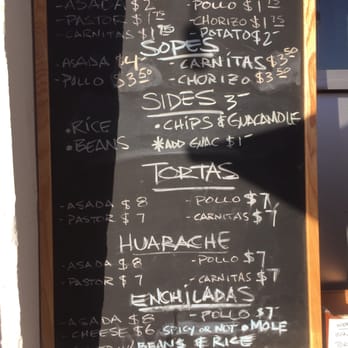 -ASADA $2 -POLLO $1 75
-PASTOR $1 75 -CHORIZO $1 75
-CARNITAS $1 75 POTATO $2-
SOPES
-ASADA $4- -CARNITAS $3.50
-POLLO $3.50 -CHORIZO $3.50
SIDES 3-
•RICE •CHIPS & GUACAMOLE
•BEANS *ADD GUAC $1-
TORTAS
-ASADA $8 -POLLO $7
-PASTOR $7 -CARNITAS $7
HUARACHE
-ASADA $8 -POLLO $7
-PASTOR $7 -CARNITAS $7
ENCHILADAS
-ASADA $8 -POLLO $7
-CHEESE $6 SPICY OR NOT •MOLE
BEANS & RICE